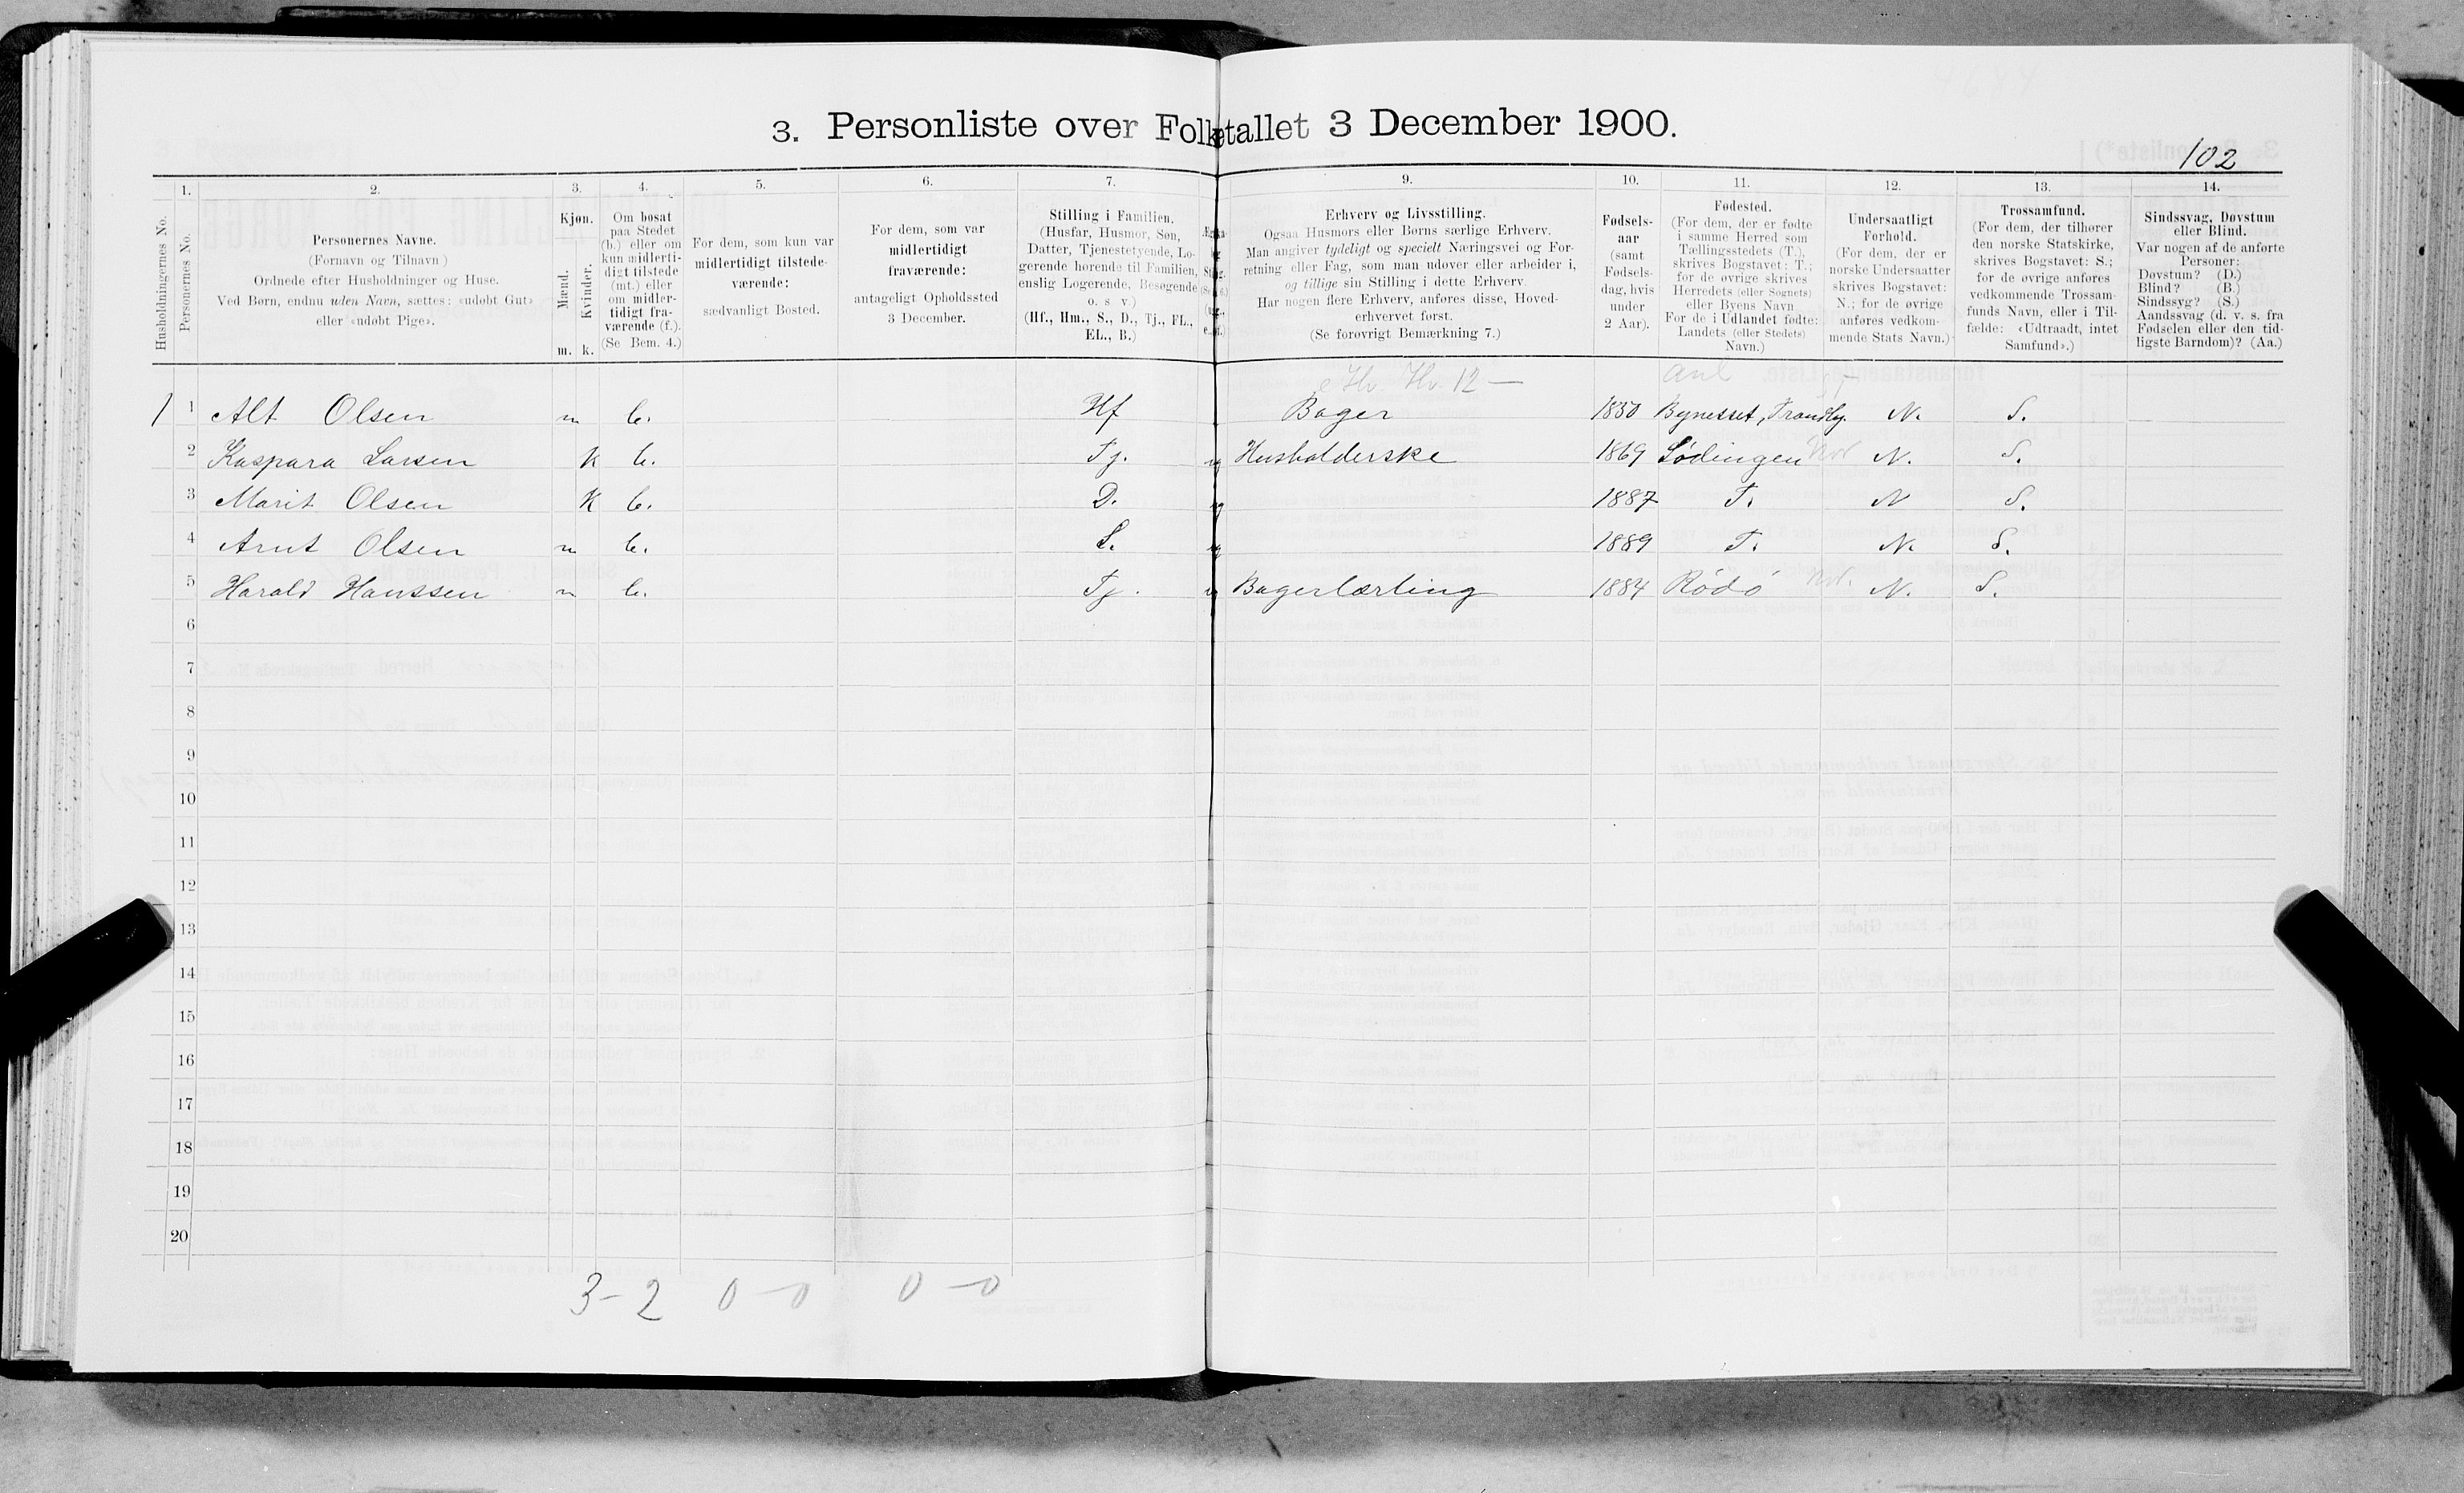 3. Personliste over Folketallet 3 December 1900.
102
1. 2. 3. 4. 5. 6. 7. 9. 10. 11. 12. 13. 14.
Husholdningernes No.
Personernes No.
Personernes Navne.
(Fornavn og Tilnavn)
Ordnede efter Husholdninger og Huse.
Ved Børn, endnu uden Navn, sættes: «udøbt Gut»
eller «udøbt Pige».
Kjøn.
Mænd.
Kvinder.
m. k.
Om bosat
paa Stedet
(b.) eller om
kun midlerti-
digt tilstede
(mt.) eller
om midler-
tidigt fra-
værende (f.).
(Se Bem. 4.)
For dem, som kun var
midlertidigt tilstede-
værende:
sædvanligt Bosted.
For dem, som var
midlertidigt
fraværende:
antageligt Opholdssted
3 December.
Stilling i Familien.
(Husfar, Husmor, Søn,
Datter, Tjenestetyende, Lo-
gerende hørende til Familien,
enslig Logerende, Besøgende
o. s. v.)
(Hf., Hm., S., D., Tj., FL.,
EL., B.)
Erhverv og Livsstilling.
Ogsaa Husmors eller Børns særlige Erhverv.
Man angiver tydeligt og specielt Næringsvei og For-
retning eller Fag, som man udøver eller arbeider i,
og tillige sin Stilling i dette Erhverv.
Har nogen flere Erhverv, anføres disse, Hoved-
erhvervet først.
(Se forøvrigt Bemærkning 7.)
Fødsels-
aar
(samt
Fødsels-
dag, hvis
under
2 Aar).
Fødested.
(For dem, der er fødte
i samme Herred som
Tællingsstedets (T.),
skrives Bogstavet: T.;
for de øvrige skrives
Herredets (eller Sognets)
eller Byens Navn
For de i Udlandet fødte:
Landets (eller Stedets)
Navn.)
Undersaatligt
Forhold.
(For dem, der er
norske Undersaatter
skrives Bogstavet:
N.; for de øvrige
anføres vedkom-
mende Stats Navn.)
Trossamfund.
(For dem, der tilhører
den norske Statskirke,
skrives Bogstavet: S.;
for de øvrige anføres
vedkommende Trossam-
funds Navn, eller i Til-
fælde: «Udtraadt, intet
Samfund».)
Sindssvag, Døvstum
eller Blind.
Var nogen af de anførte
Personer:
Døvstum? (D.)
Blind? (B.)
Sindssyg? (S.)
Aandssvag (d. v. s. fra
Fødselen eller den tid-
ligste Barndom)? (Aa.)
1 1 Alt Olsen m b. Hf Bager 1850 Bynesset, Trondhj. N. S.
2 Kaspara Larsen K b. Tj. ug Husholderske 1869 Lødingen N. S.
3 Marit Olsen K b. D. ug 1887 T. N S.
4 Arnt Olsen m b. S. ug 1889 T. N. S.
5 Harald Hanssen m b. Tj. ug Bagerlærling 1884 Rødø N. S.
6
7
8
9
10
11
12
13
14
15
16
17
18
19
20
3-2 0-0 0-0